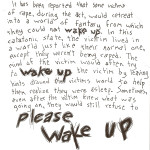 It has been reported that some victims
of rape, during the act, would retreat
into a world of fantasy from which
they could not wake up. In this
catatonic state, the victim lived in
a world just like their normal one,
except they weren't being raped. The
of the victim would often try
to wake up the victim by leaving
hints around the victim's world to help
them realize they were asleep. Sometimes,
even after the victim knew what was
going on, they would still refuse to
please
wake up